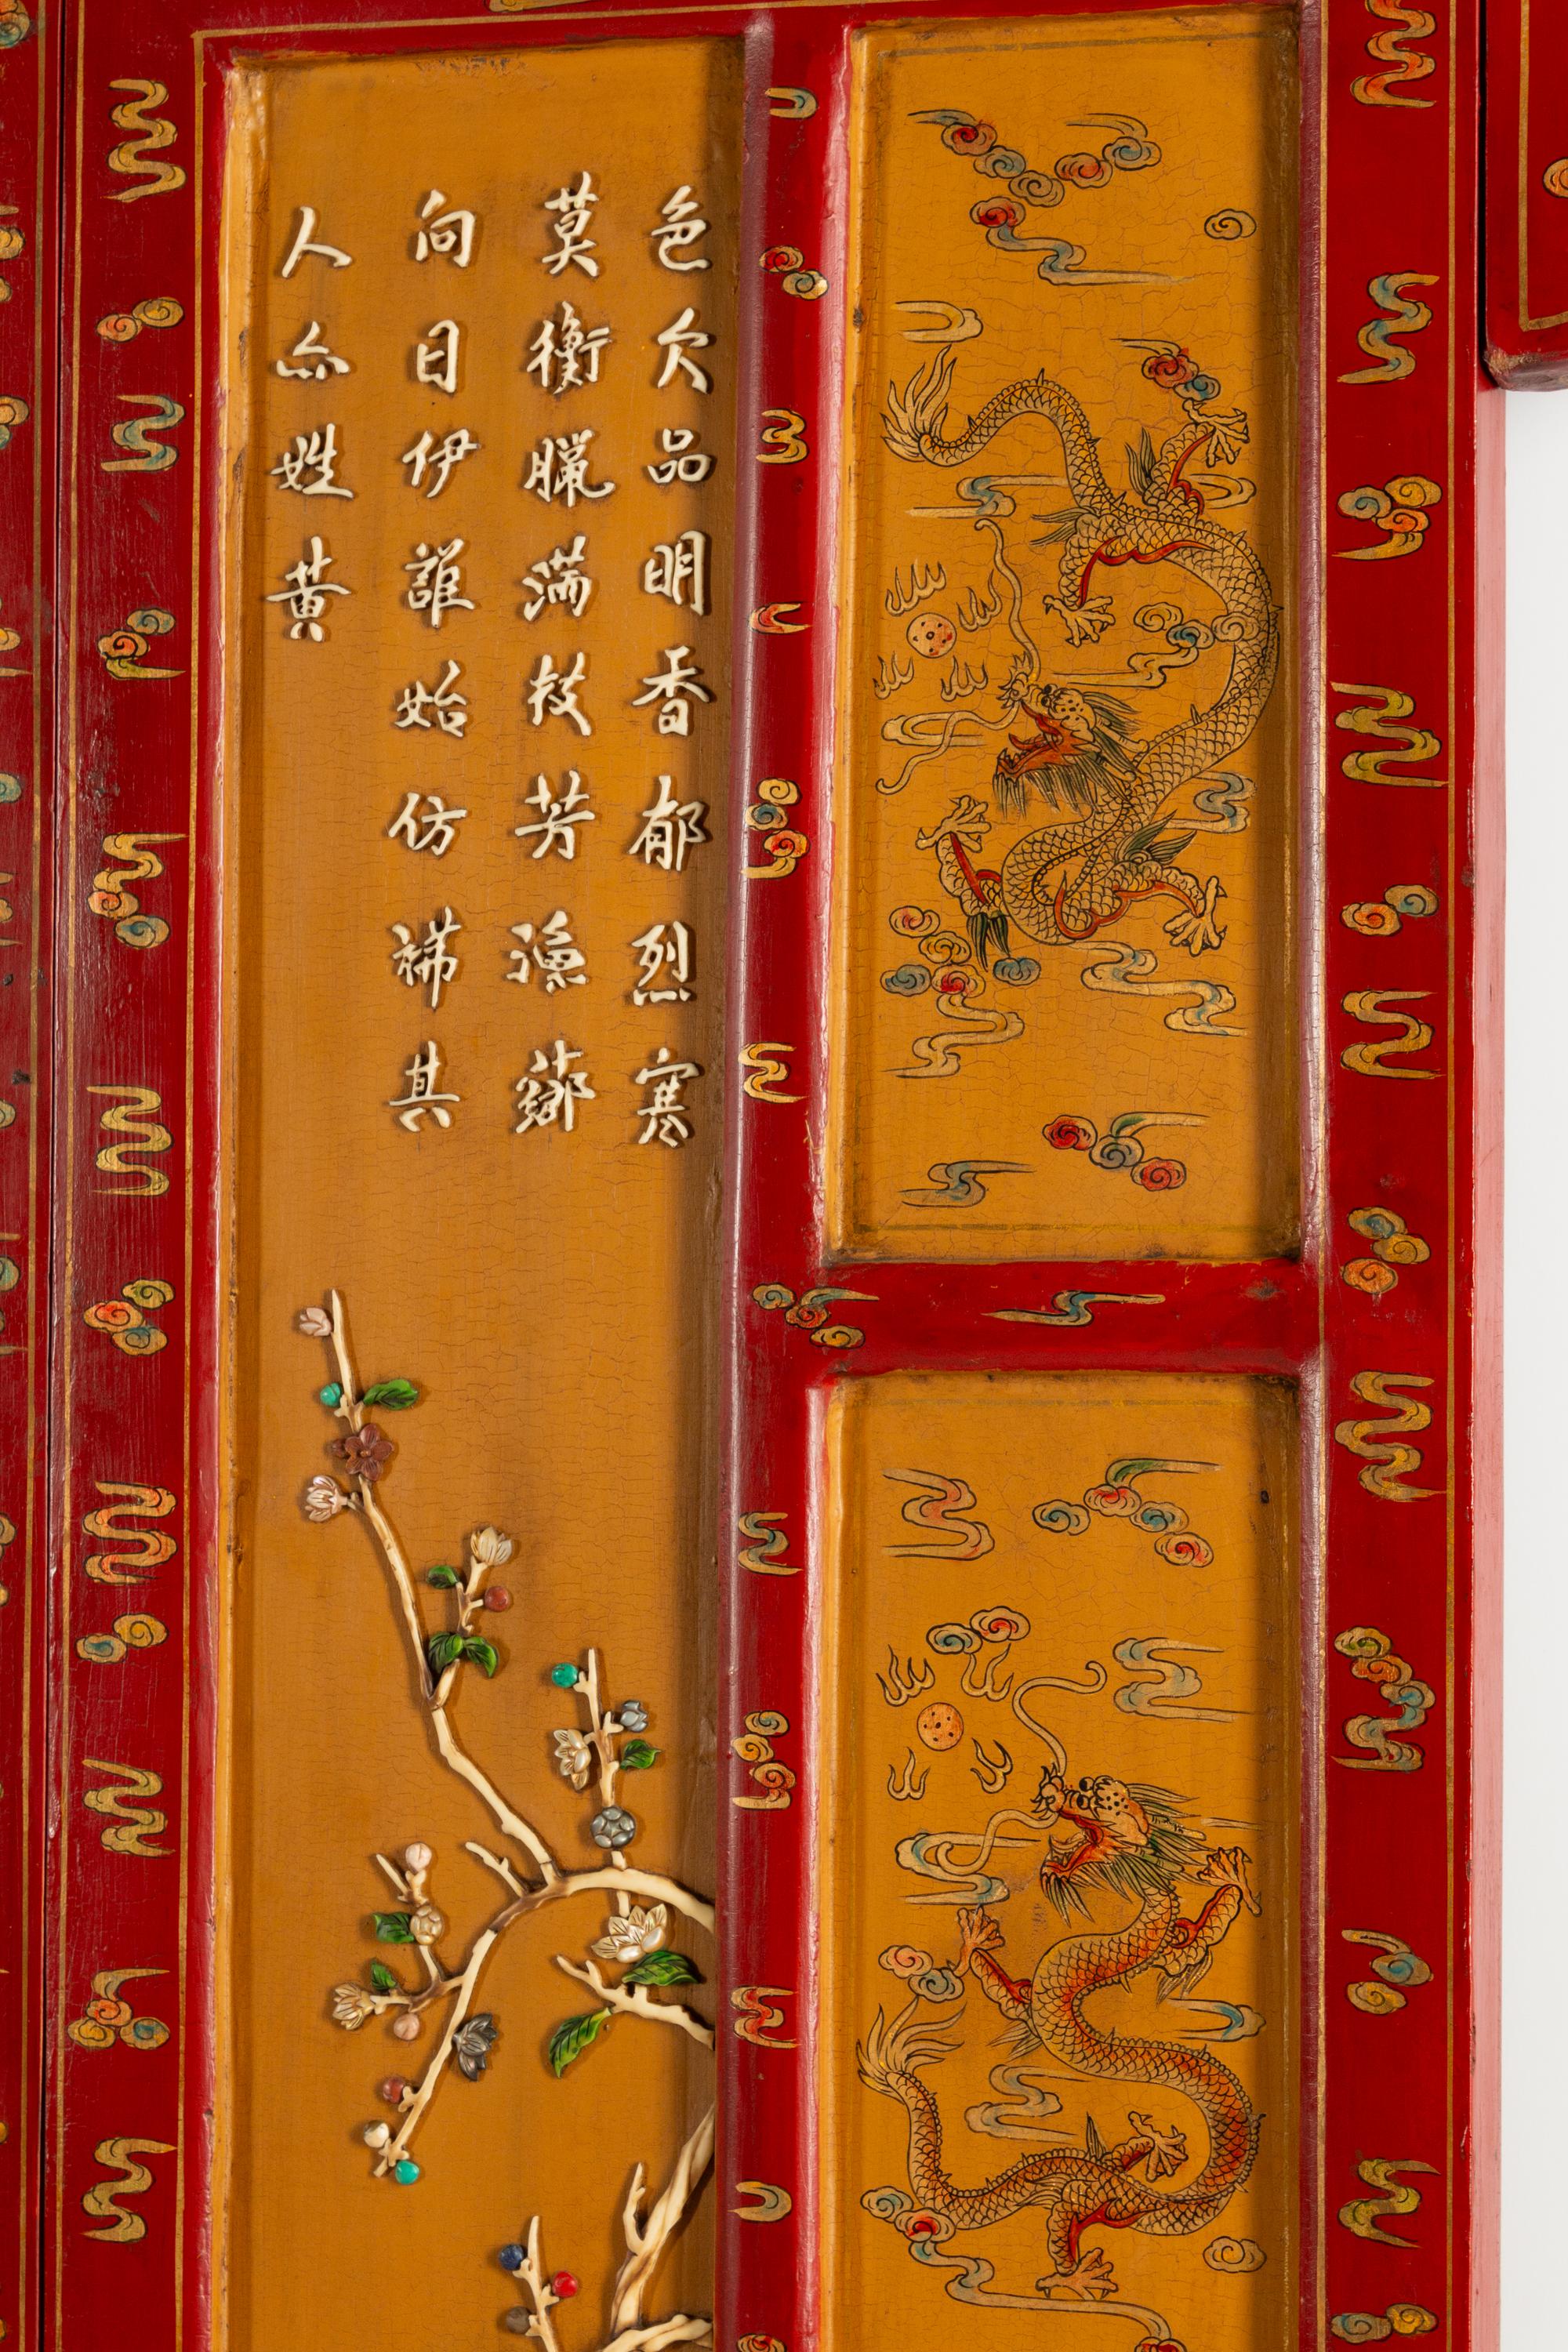 色欠品明香郁烈寒
莫衡臘滿枝芳漁薌
向日伊誰始仿彿其
人亦姓黃